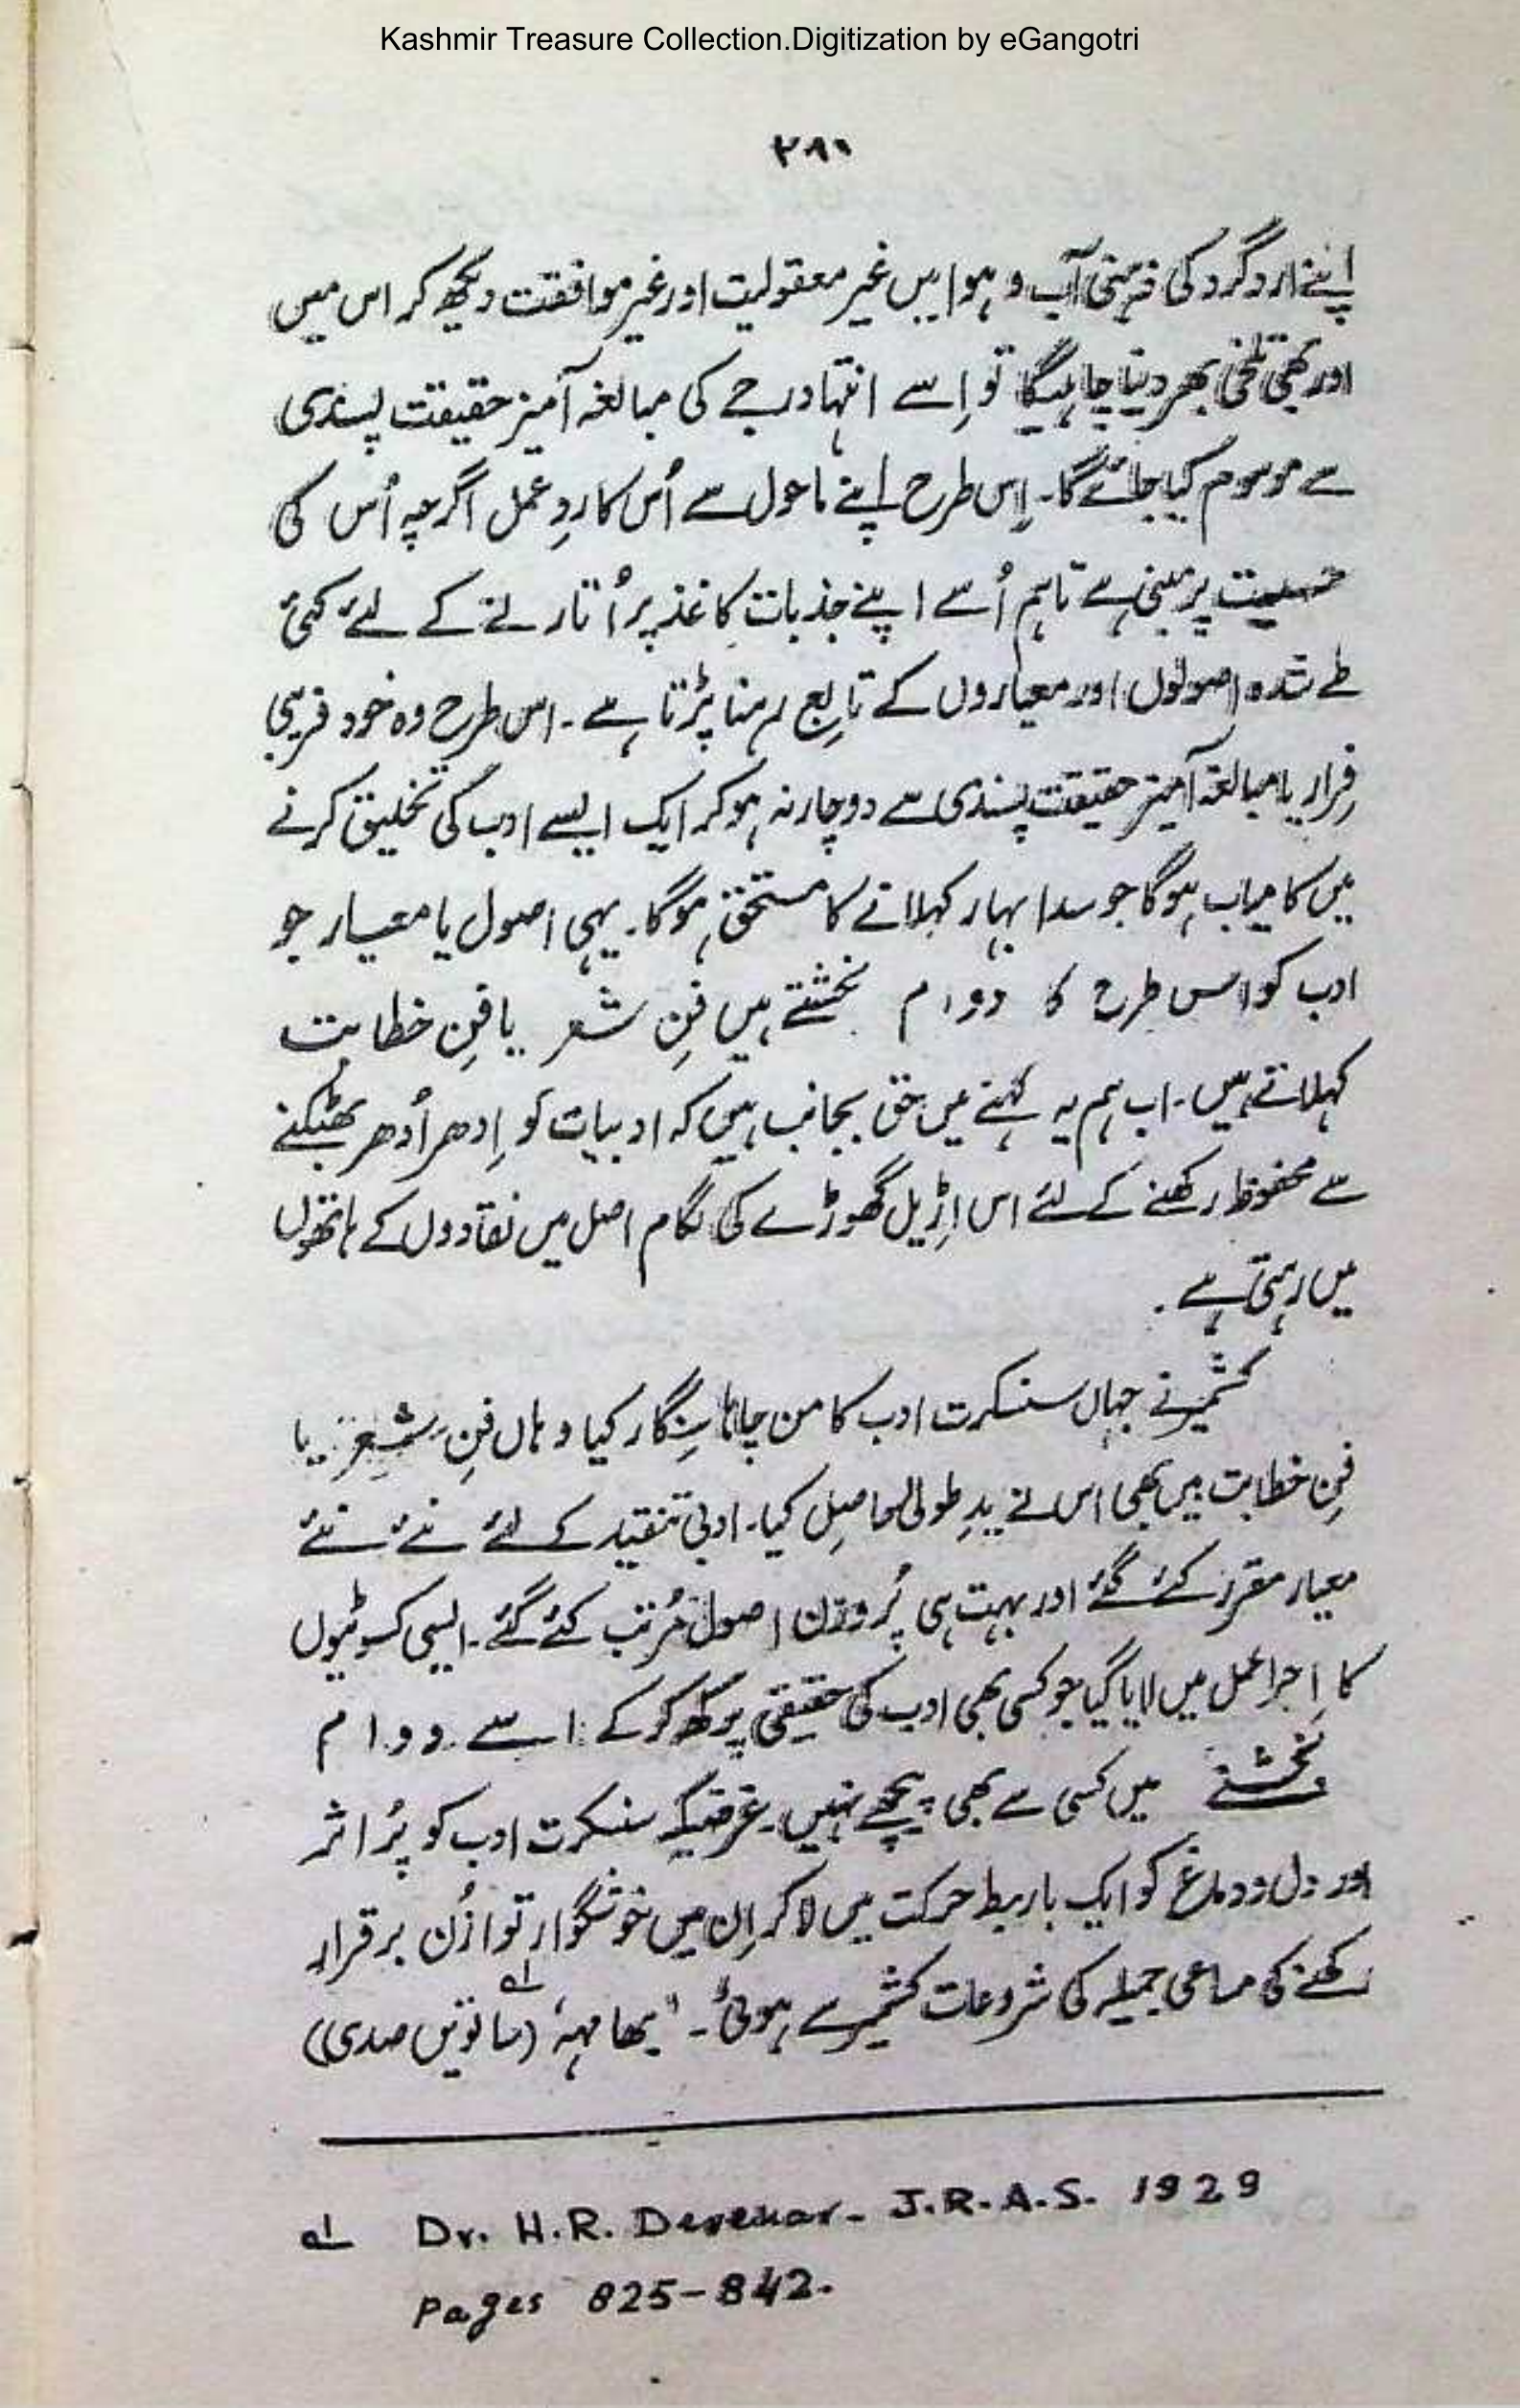 Kashmir Treasure Collection.Digitization by eGangotri
۲۸۱
اپنے ارد گرد کی ذہنی آب و ہوا میں غیر معقولیت اور غیر موافقت دیکھ کر اس میں
اور بھی تلخی بھر دینا چاہیگا تو اِسے انتہا درجے کی مبالغہ آمیز حقیقت پسندی
سے موسوم کیا جائے گا۔ اِس طرح اپنے ماحول سے اُس کا ردِ عمل اگرچہ اُس کی
حسیت پر مبنی ہے تاہم اُسے اپنے جذبات کاغذ پر اُتارنے کے لئے کئی
طے شدہ اصولوں اور معیاروں کے تابع رہنا پڑتا ہے۔ اس طرح وہ خود فریبی
فِرار یا مبالغہ آمیز حقیقت پسندی سے دوچار نہ ہو کر ایک ایسے ادب کی تخلیق کرنے
میں کامیاب ہوگا جو سدا بہار کہلانے کا مستحق ہوگا۔ یہی اصول یا معیار جو
ادب کو اس طرح کا دوام بخشتے ہیں فنِ شعر یا فنِ خطابت
کہلاتے ہیں۔ اب ہم یہ کہنے میں حق بجانب ہیں کہ ادبیات کو اِدھر اُدھر بھٹکنے
سے محفوظ رکھنے کے لئے اس اڑیل گھوڑے کی لگام اصل میں نقادوں کے ہاتھوں
میں رہتی ہے۔
کشمیر نے جہاں سنسکرت ادب کا من چاہا سِنگار کیا وہاں فنِ شعر یا
فنِ خطابت میں بھی اس نے یدِ طولیٰ حاصل کیا۔ ادبی تنقید کے لئے نئے نئے
معیار مقرر کئے گئے اور بہت ہی پُر وزن اصول مُرتب کئے گئے۔ ایسی کسوٹیوں
کا اِجرا عمل میں لایا گیا جو کسی بھی ادب کی حقیقی پرکھ کر کے اسے دوام
بخشنے میں کسی سے بھی پیچھے نہیں۔ غرضیکہ سنسکرت ادب کو پُر اثر
اور دل و دماغ کو ایک بار ربط حرکت میں لا کر اِن میں خوشگوار توازُن برقرار
رکھنے کی مساعی جمیلہ کی شروعات کشمیر سے ہوئی۔ "بھامہہ" لے (ساتویں صدی)
لے Dr. H.R. Devekar- J.R.A.S. 1929
Pages 825-842.